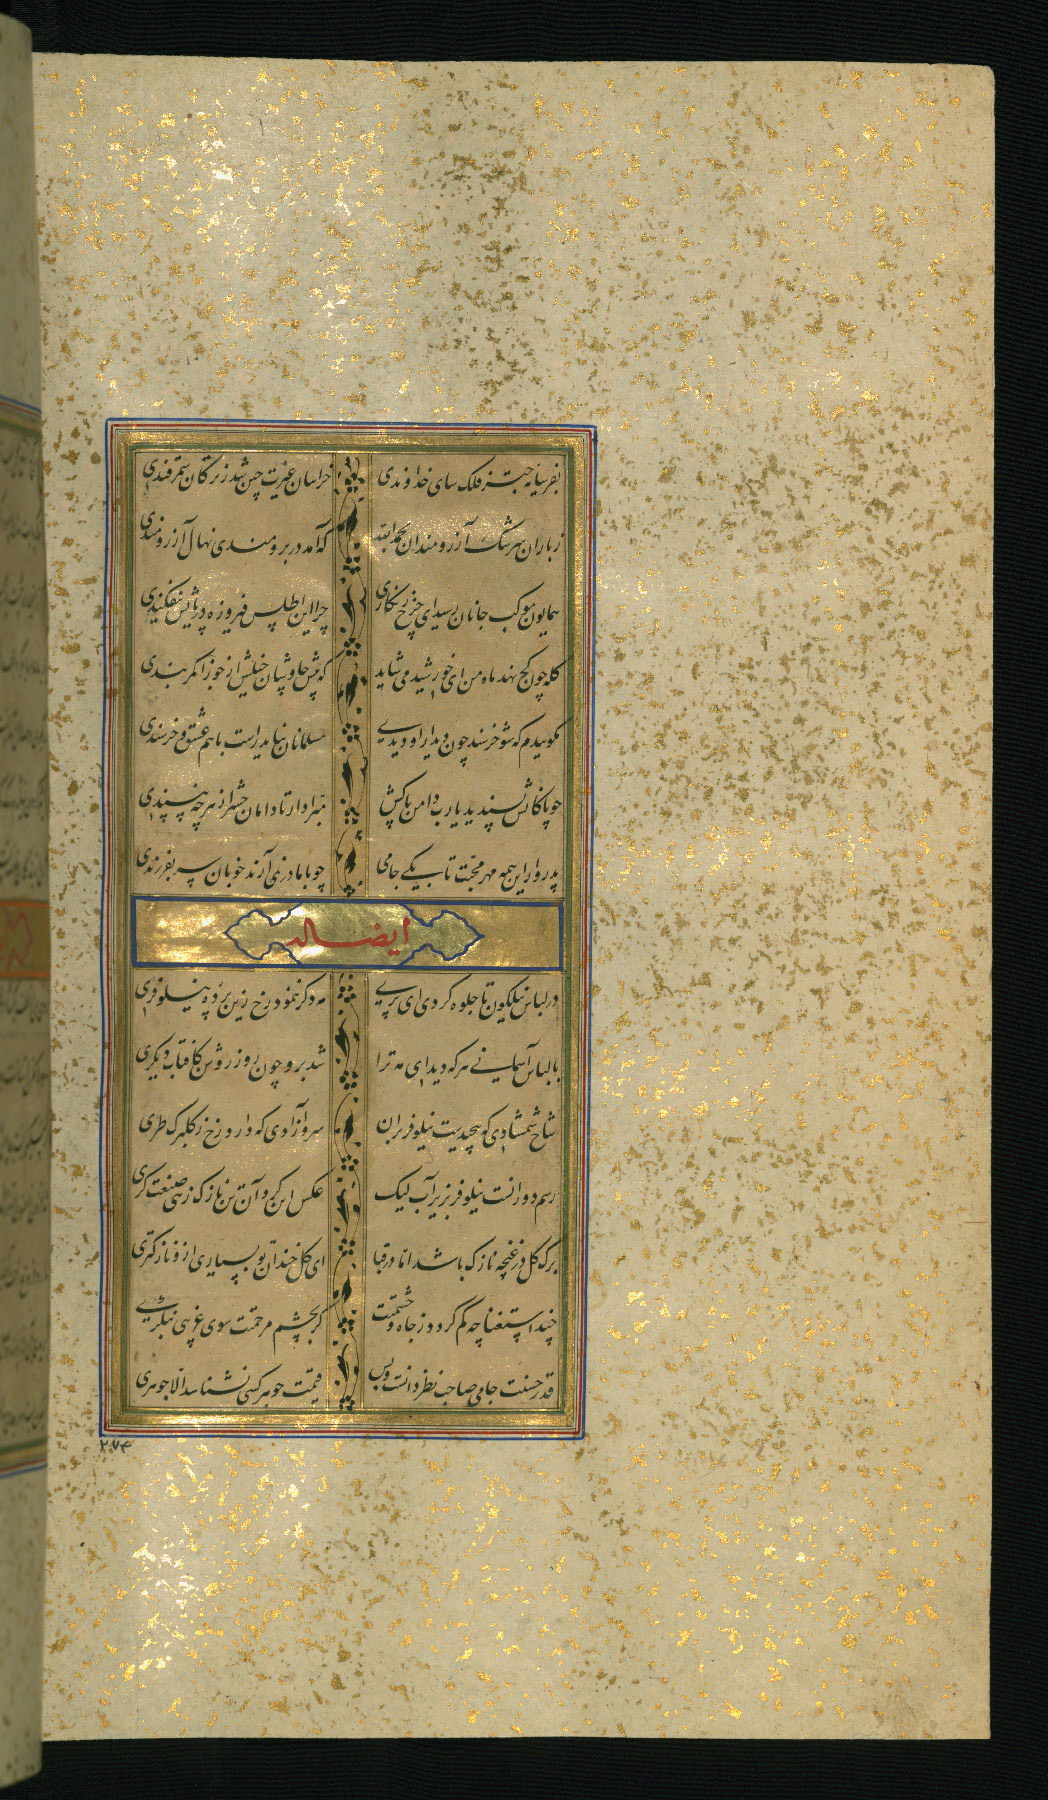 بفر سایهٔ چتر فلک سای خداوندی خراسان غیرت چین شد ز ترکان سمرقندی
ز باران سرشک آرزومندان بحمدالله که آمد در برومندی نهال آرزومندی
همایون موکب جانان رسید ای چرخ زنگاری چرا این اطلس فیروزه در پایش نیفکندی
کله چون کج نهد ماه من ای خورشید می شاید که پیش چاوشان خیلش از جوزا کمر بندی
مگوییدم که شو خرسند چون دیدار او دیدی مسلمانان نیاید راست با هم عشق و خرسندی
چو پاکانش پسندیدند یارب دامن پاکش مبرا دار تا دامان حشر از هر چه نپسندی
پدروار این همه مهر و محبت تا بکی جامی چو با مادر نمی آرند خوبان سر بفرزندی
ایضا له
در لباس نیلگون تا جلوه کردی ای پری مه دگر ننمود رخ زین پردهٔ نیلوفری
با لباس آسمانی هر که دید ای مه ترا شد برو چون روز روشن کافتاب دیگری
شاخ شمشادی که پیچیدست نیلوفر بر آن سرو آزادی که دارد رخ ز گلبرگ طری
رسم دورانست نیلوفر بزیر آب لیک عکس این کرد آن تن نازک زهی صنعت گری
برگ گل در غنچه نازک باشد اما در قبا ای گل خندان تو بسیاری ازو نازکتری
چند استغنا چه کم گردد ز جاه و حشمتت گر بچشم مرحمت سوی غریبی بنگری
قدر حسنت جامی صاحب نظر دانست و بس قیمت جوهر کسی نشناسد الا جوهری
۲۷۴